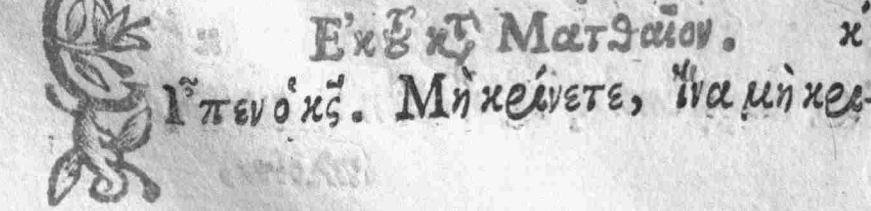 Ἐκ τοῦ κτ Ματθαῖον. κʹ
Ἶπεν ὁ κς̃. Μὴ κρίνετε, ἵνα μὴ κρι-